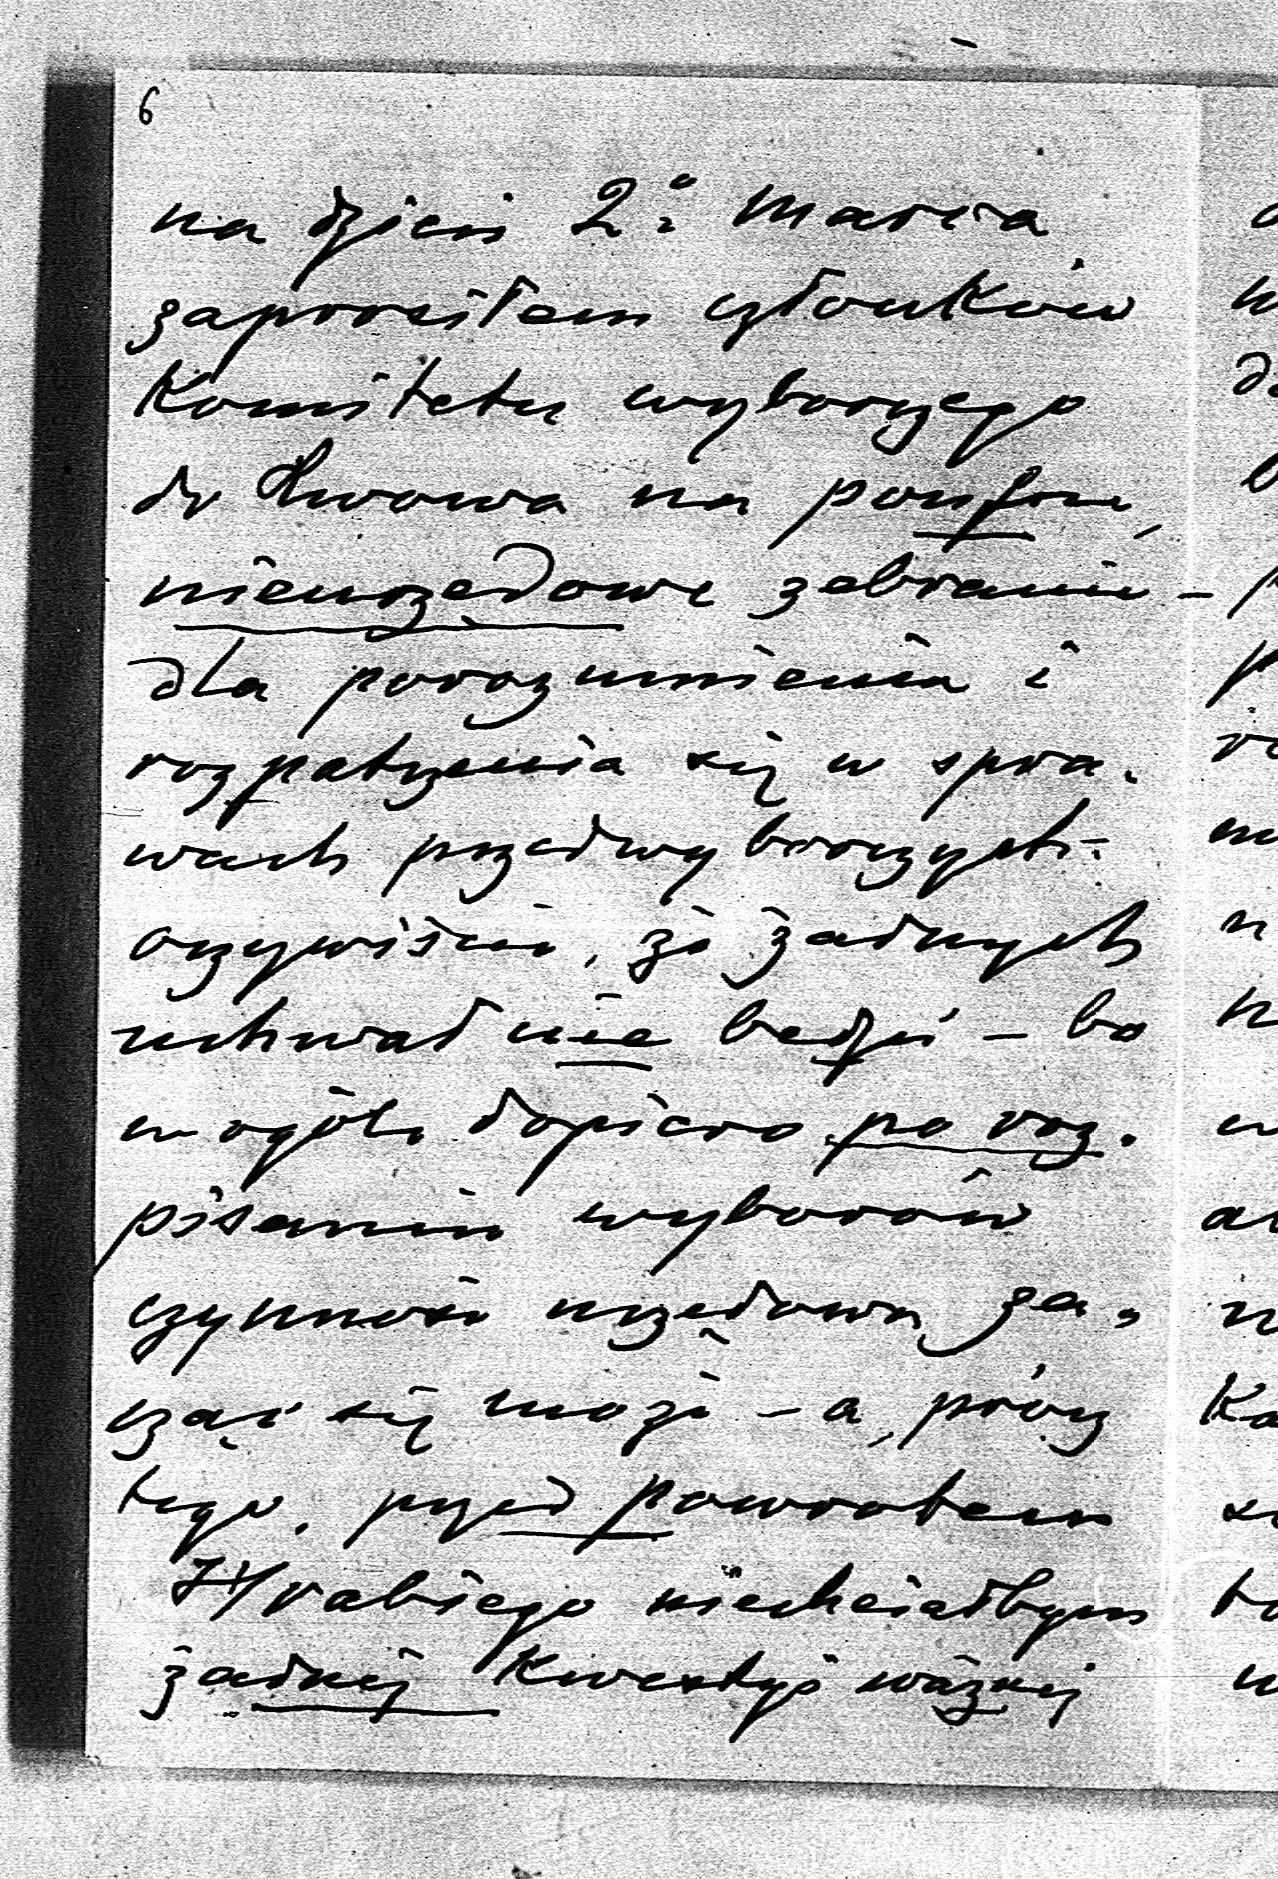 6
na dzień 2º marca
zaprosiłem członków
Komitetu wyborczego
do Lwowa na poufne,
nieurzędowe zebranie –
dla porozumienia i
rozpatrzenia się w spra-
wach przedwyborczych –
oczywiście, że żadnych
uchwał nie będzie – bo
w ogóle dopiero po roz-
pisaniu wyborów
czynność urzędowa za-
cząć się może – a, prócz
tego, przed powrotem
JWHrabiego niechciałbym
żadnej kwestyi ważnej